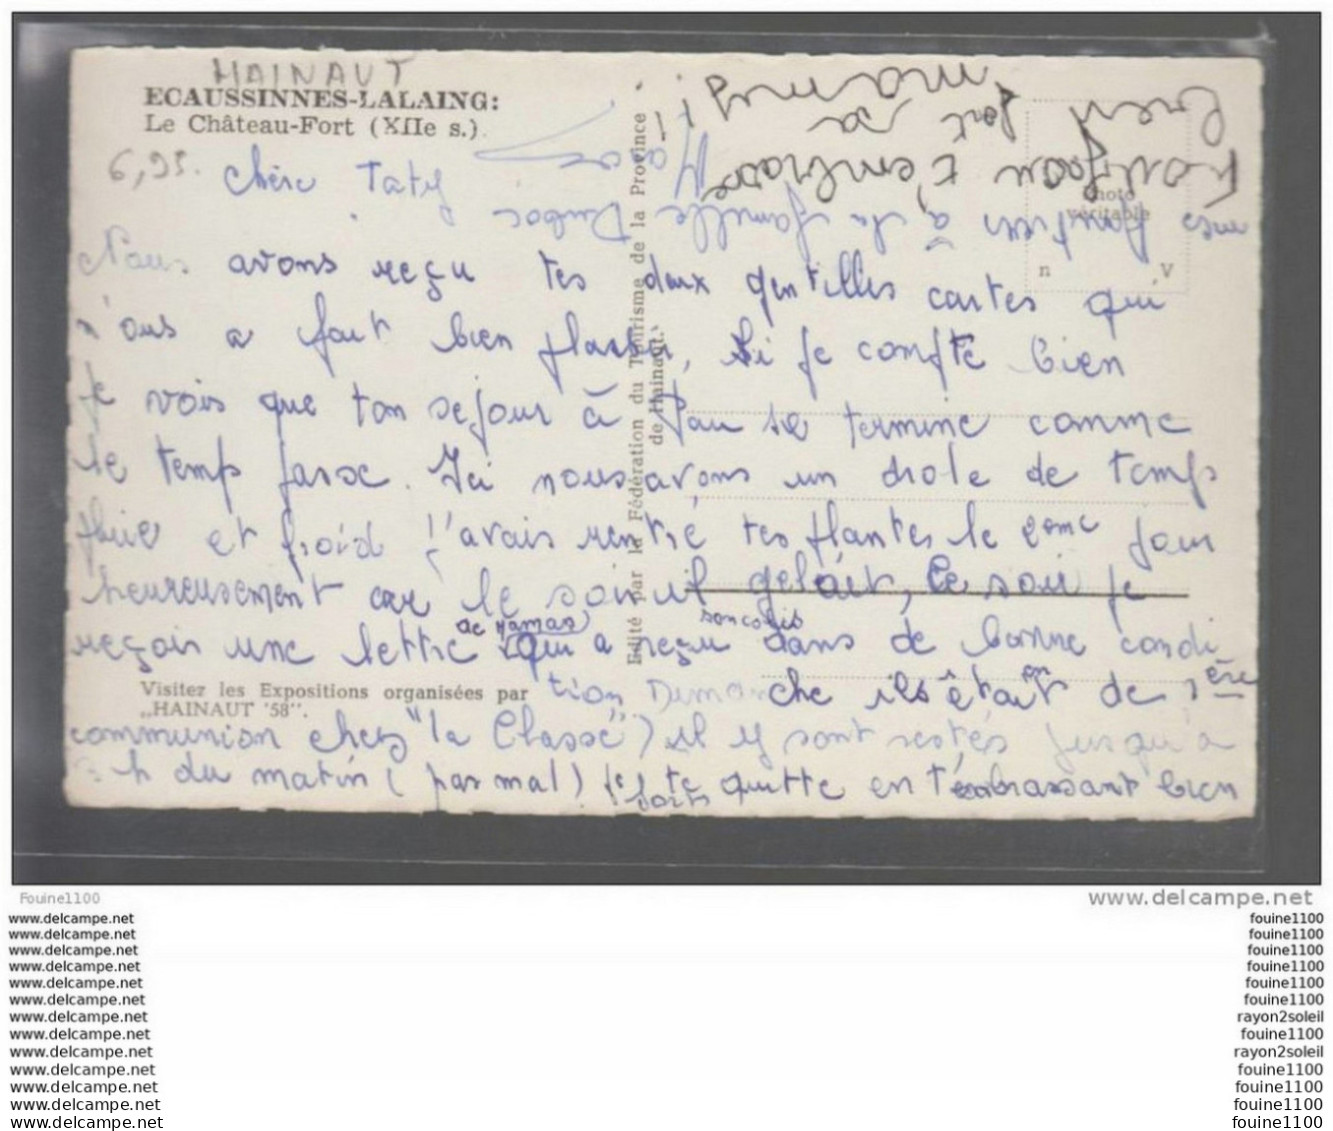 HAINAUT
ECAUSSINNES-LALAING:
Le Château-Fort (XIIe s.).
6,95.
chère Taty
Nous avons reçu tes deux gentilles cartes qui
n'ous a fait bien plaisir, Si je compte bien
je vois que ton sejour à Pau se termine comme
le temp passe. Ici nous avons un drole de temp
pluie et froid j'avais rentré tes plantes le 2eme jour
heureusement car le soir il gelait, Ce soir je
reçois une lettre de Mamas qui a reçu son colis dans de bonne condi
tion Dimanche ils était en de 1ère
communion chez "la Classe") il y sont restés jusqu'à
h du matin (pas mal) je te quitte en t'embrassant bien
forts
mes pensées à la famille Duboc
Foufou t'embrasse
bien fort sa
mamy !
Photo
véritable
n V
Edité par la Fédération du Tourisme de la Province
de Hainaut.
Visitez les Expositions organisées par
„HAINAUT '58".
Fouine1100
www.delcampe.net
www.delcampe.net fouine1100
www.delcampe.net fouine1100
www.delcampe.net fouine1100
www.delcampe.net fouine1100
www.delcampe.net fouine1100
www.delcampe.net fouine1100
www.delcampe.net rayon2soleil
www.delcampe.net fouine1100
www.delcampe.net rayon2soleil
www.delcampe.net fouine1100
www.delcampe.net fouine1100
www.delcampe.net fouine1100
www.delcampe.net fouine1100